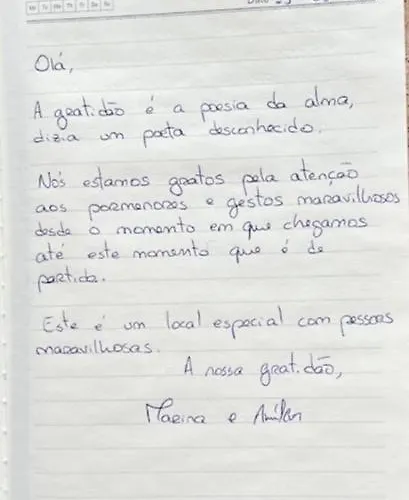 Olá,
A gratidão é a poesia da alma,
dizia um poeta desconhecido.
Nós estamos gratos pela atenção
aos pormenores e gestos maravilhosos
desde o momento em que chegamos
até este momento que é de
partida.
Este é um local especial com pessoas
maravilhosas.
A nossa gratidão,
Marina e